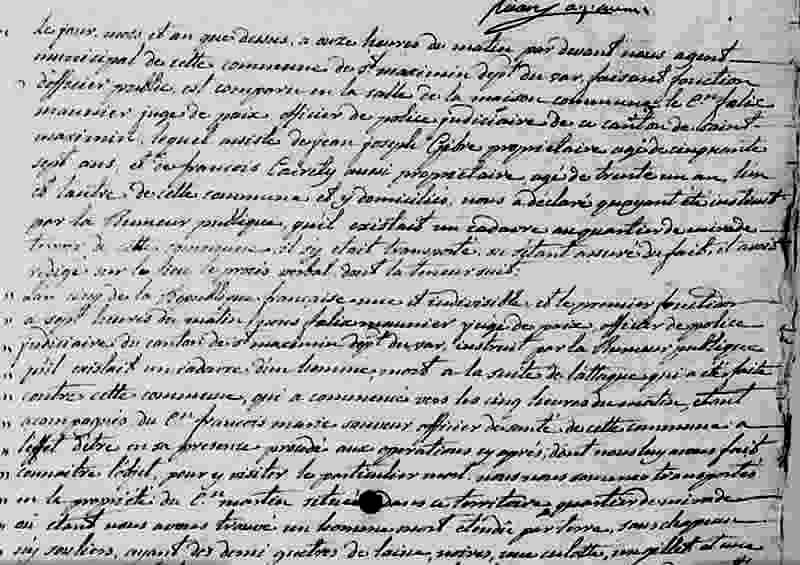 le jour, mois et an que dessus, a onze heures du matin par devant nous agent
municipal de cette commune de St maximin dept du var, faisant fonction
d'officier public est comparu en la salle de la maison commune le Cen felix
maunier juge de paix officier de police judiciaire de ce canton de saint
maximin, lequel assisté de jean joseph propriétaire agé de cinquante
sept ans, et de françois aussi propriétaire agé de trente un an, l'un
et l'autre de cette commune et y domiciliés, nous a déclaré qu'ayant été instruit
par la Rumeur publique, qu'il existait un cadavre au quartier de mirade
terroir de cette commune il s'y était transporté, et s'étant assuré du fait, il avait
redigé sur le lieu le procès verbal dont la teneur suit.
" L'an cinq de la République française une et indivisible et le premier fonction
" a sept heures du matin nous felix maunier juge de paix officier de police
" judiciaire du canton de St maximin dept du var, instruit par la Rumeur publique
" qu'il existait un cadavre d'un homme, mort a la suite de l'attaque qui a été faite
" contre cette commune, qui a commencé vers les cinq heures du matin, étant
" acompagnés du Cen françois marie sauveur officier de santé de cette commune a
" l'effet d'être en sa presence procédé aux operations cy après, dont nous luy avons fait
" connaitre l'objet, pour y visiter le particulier mort. nous nous sommes transportés
" en la propriété du Cen martin située dans ce territoire quartier de mirade
" où étant nous avons trouvé un homme mort étendu par terre, sans chapeau
" ny souliers, ayant des demi guetres de laine, noires, une culotte, un gillet et une